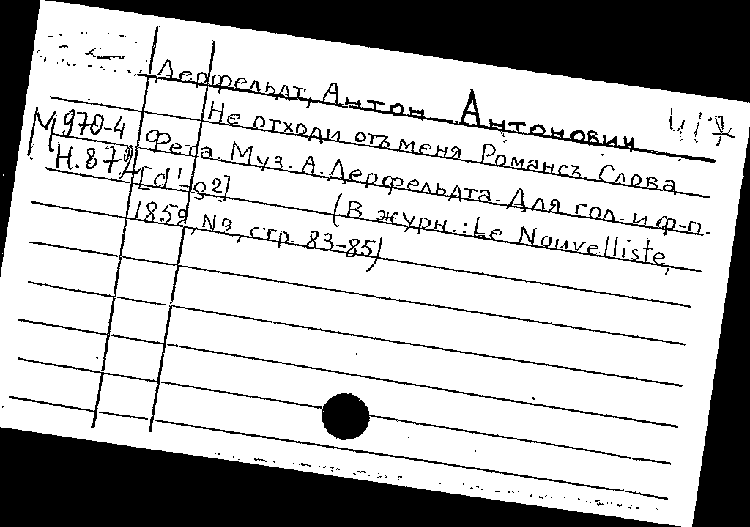 Дерфельдт, Антон Антонович
Не отходи отъ меня Романсъ Слова
М 970-4 Фета. Муз. А. Дерфельдта. Для гол. и ф-п.
Н. 879 [d'-g2] (В журн.: Le Nouvelliste,
1859, N9, стр. 83-85)